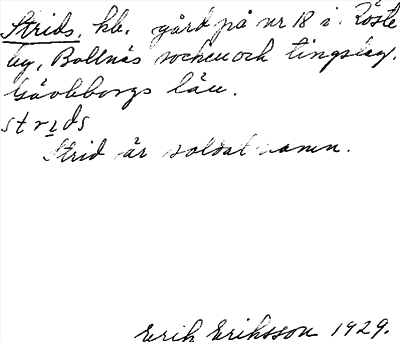 Strids, kb. gård på nr 18 i Röste
by, Bollnäs socken och tingslag,
Gävleborgs län.
strids
Strid är soldatnamn.
Erik Eriksson 1929.